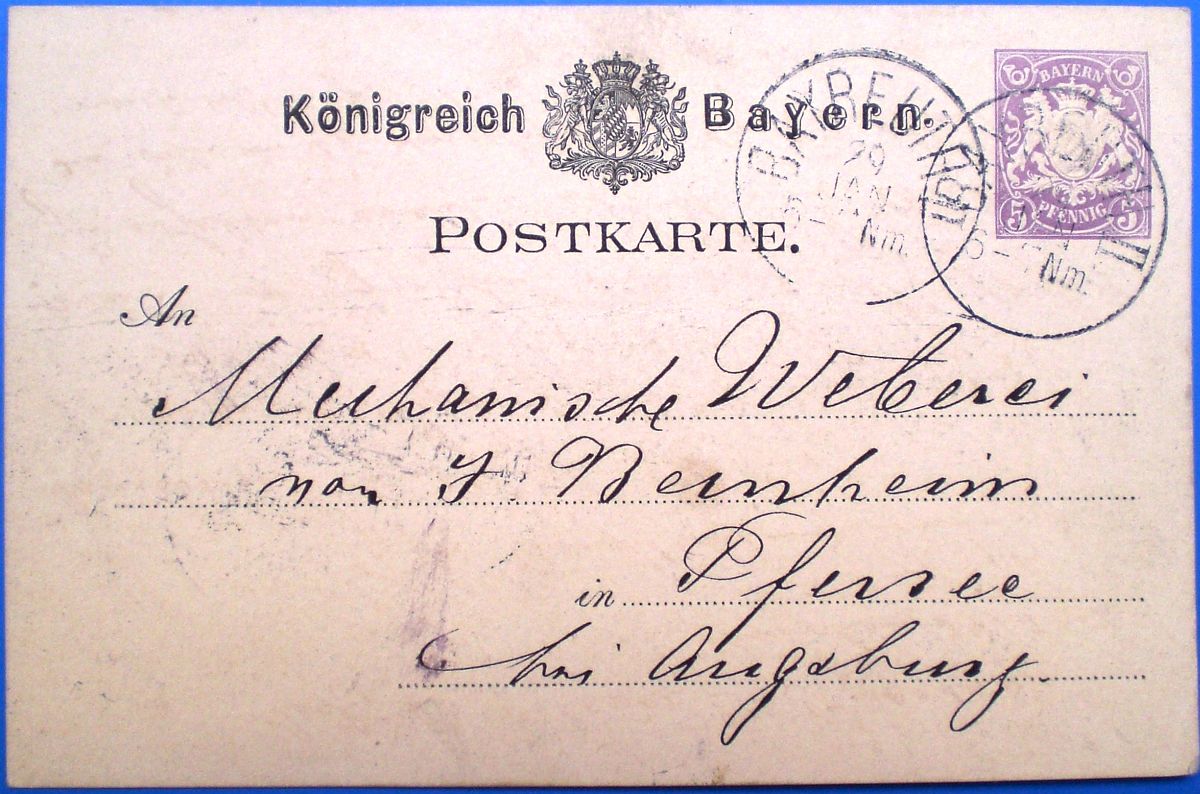 Königreich Bayern.
POSTKARTE.
BAYREUTH
29
JAN
Nm.
BAYERN
5 PFENNIG 5
II
Nm.
An
Mechanische Weberei
von J. Bernheim
in Pfersee
bei Augsburg.